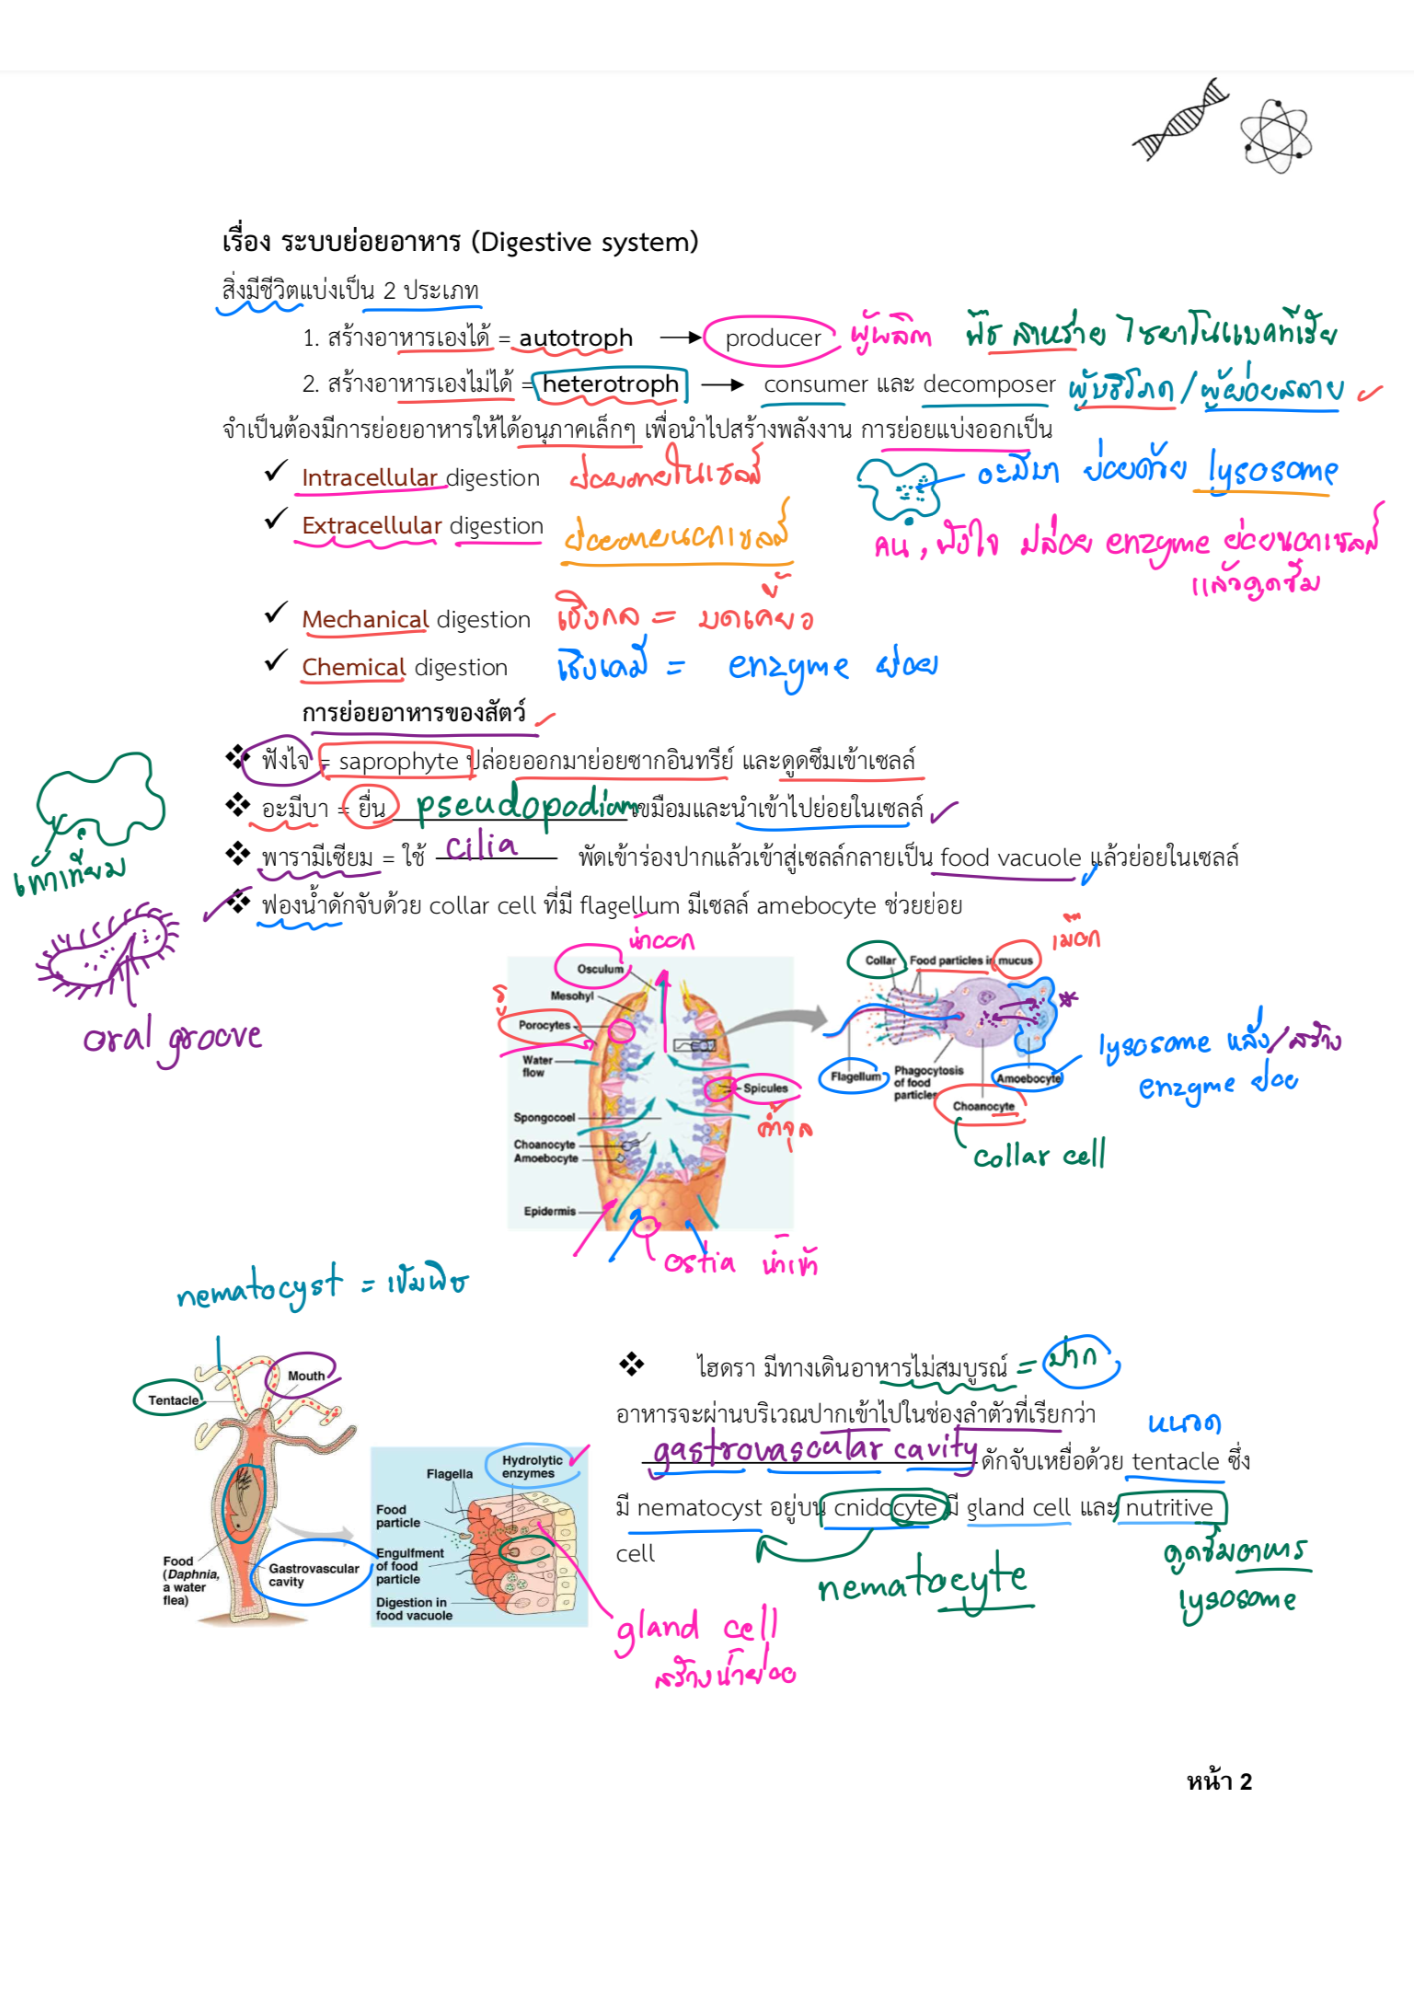 เรื่อง ระบบย่อยอาหาร (Digestive system)
สิ่งมีชีวิตแบ่งเป็น 2 ประเภท
1. สร้างอาหารเองได้ = autotroph → producer ผู้ผลิต พืช สาหร่าย ไซยาโนแบคทีเรีย
2. สร้างอาหารเองไม่ได้ = heterotroph → consumer และ decomposer ผู้บริโภค / ผู้ย่อยสลาย
จำเป็นต้องมีการย่อยอาหารให้ได้อนุภาคเล็กๆ เพื่อนำไปสร้างพลังงาน การย่อยแบ่งออกเป็น
✓ Intracellular digestion ย่อยภายในเซลล์ อะมีบา ย่อยด้วย lysosome
✓ Extracellular digestion ย่อยภายนอกเซลล์ คน, ฟังใจ ปล่อย enzyme ย่อยนอกเซลล์
แล้วดูดซึม
✓ Mechanical digestion เชิงกล = บดเคี้ยว
✓ Chemical digestion เชิงเคมี = enzyme ย่อย
การย่อยอาหารของสัตว์
❖ ฟังไจ = saprophyte ปล่อยออกมาย่อยซากอินทรีย์ และดูดซึมเข้าเซลล์
❖ อะมีบา = ยื่น pseudopodium เขมือมและนำเข้าไปย่อยในเซลล์
❖ พารามีเซียม = ใช้ cilia พัดเข้าร่องปากแล้วเข้าสู่เซลล์กลายเป็น food vacuole แล้วย่อยในเซลล์
เท้าเทียม
❖ ฟองน้ำดักจับด้วย collar cell ที่มี flagellum มีเซลล์ amebocyte ช่วยย่อย
oral groove
น้ำออก
Osculum
Mesohyl
รู
Porocytes
Water
flow
Spicules
ค้ำจุน
Spongocoel
Choanocyte
Amoebocyte
Epidermis
ostia น้ำเข้า
เมือก
Collar Food particles in mucus
Flagellum
Phagocytosis
of food
particles
Amoebocyte
Choanocyte
lysosome หลั่ง/สร้าง
enzyme ย่อย
collar cell
nematocyst = เข็มพิษ
Mouth
Tentacle
Food
(Daphnia,
a water
flea)
Gastrovascular
cavity
Flagella
Hydrolytic
enzymes
Food
particle
Engulfment
of food
particle
Digestion in
food vacuole
gland cell
สร้างน้ำย่อย
❖ ไฮดรา มีทางเดินอาหารไม่สมบูรณ์ = ปาก
อาหารจะผ่านบริเวณปากเข้าไปในช่องลำตัวที่เรียกว่า
หนวด
gastrovascular cavity ดักจับเหยื่อด้วย tentacle ซึ่ง
มี nematocyst อยู่บน cnidocyte มี gland cell และ nutritive
cell
nematocyte
ดูดซึมอาหาร
lysosome
หน้า 2